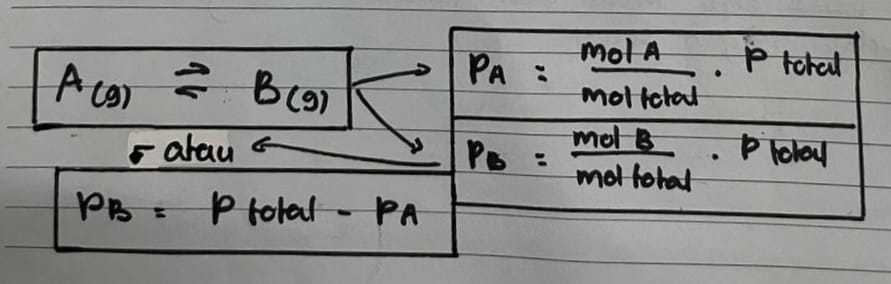 A(g) ⇌ B(g)
PA = mol A / mol total . P total
PB = mol B / mol total . P total
atau
PB = P total - PA